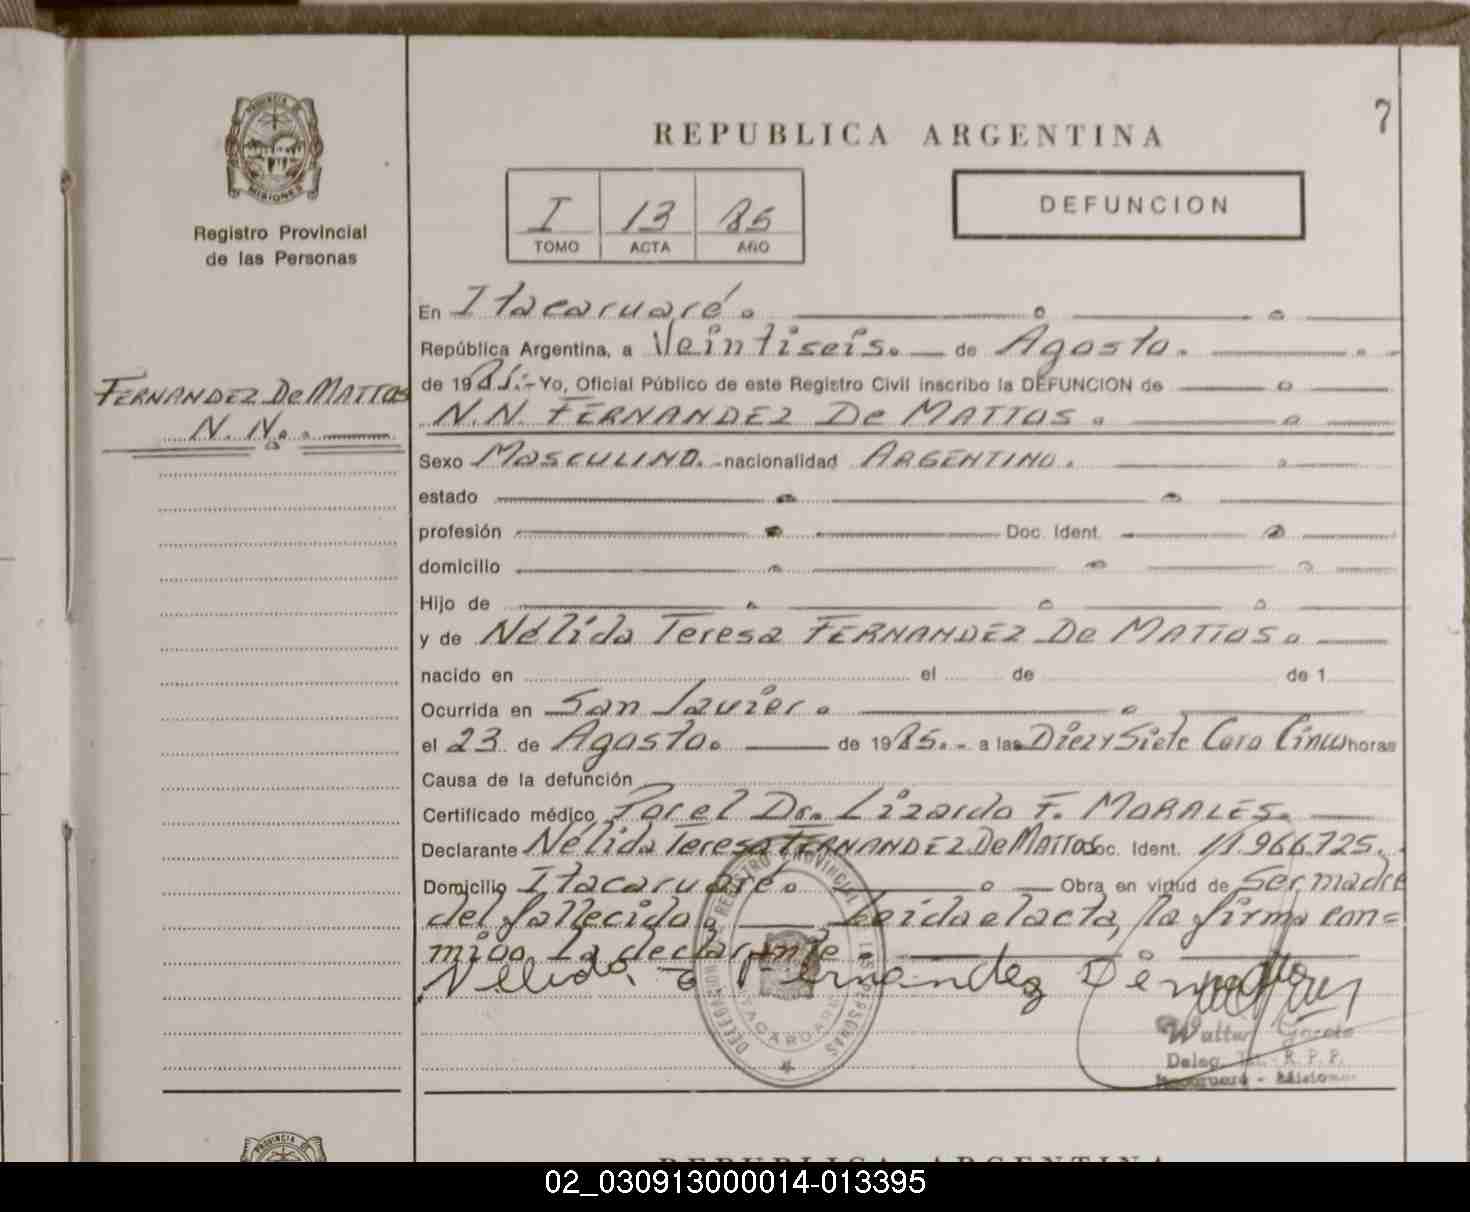 7
REPUBLICA ARGENTINA
PROVINCIA DE
MISIONES
Registro Provincial
de las Personas
I 13 85
TOMO ACTA AÑO
DEFUNCION
En Itacaruaré.
República Argentina, a Veintiseis. de Agosto.
de 1985.- Yo, Oficial Público de este Registro Civil inscribo la DEFUNCION de
FERNANDEZ De MATTOS
N. N.
N.N. FERNANDEZ De MATTOS.
Sexo MASCULINO. nacionalidad ARGENTINO.
estado
profesión Doc. Ident.
domicilio
Hijo de
y de Nélida Teresa FERNANDEZ De MATTOS.
nacido en el de de 1
Ocurrida en San Javier.
el 23 de Agosto. de 1985.- a las Diez y Siete Cero Cinco horas
Causa de la defunción
Certificado médico Por el Dr. Lizardo F. MORALES.
Declarante Nélida Teresa FERNANDEZ De MATTOS Doc. Ident. 11.966.725.
Domicilio Itacaruaré. Obra en virtud de Ser madre
del fallecido. Leida el acta, la firma con=
migo La declarante.
Nelida T Fernandez De
DELEGACION DE REGISTRO PROVINCIAL DE LAS PERSONAS
ITACARUARE
Walter García
Deleg. R. P. P.
Itacaruaré - Misiones
PROVINCIA DE
REPUBLICA ARGENTINA
02_030913000014-013395